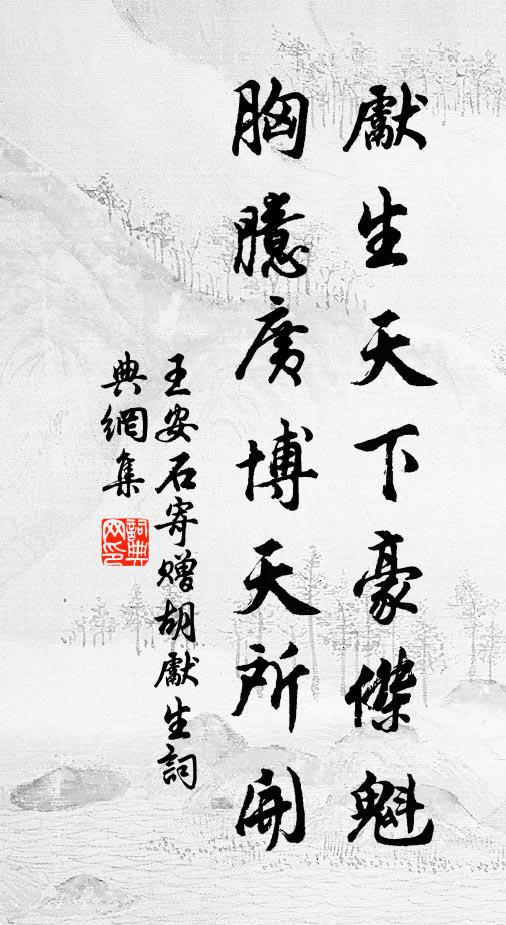 獻生天下豪傑魁
胸臆廣博天所開
王安石寄贈胡獻生詞
典網集
詞典
网印